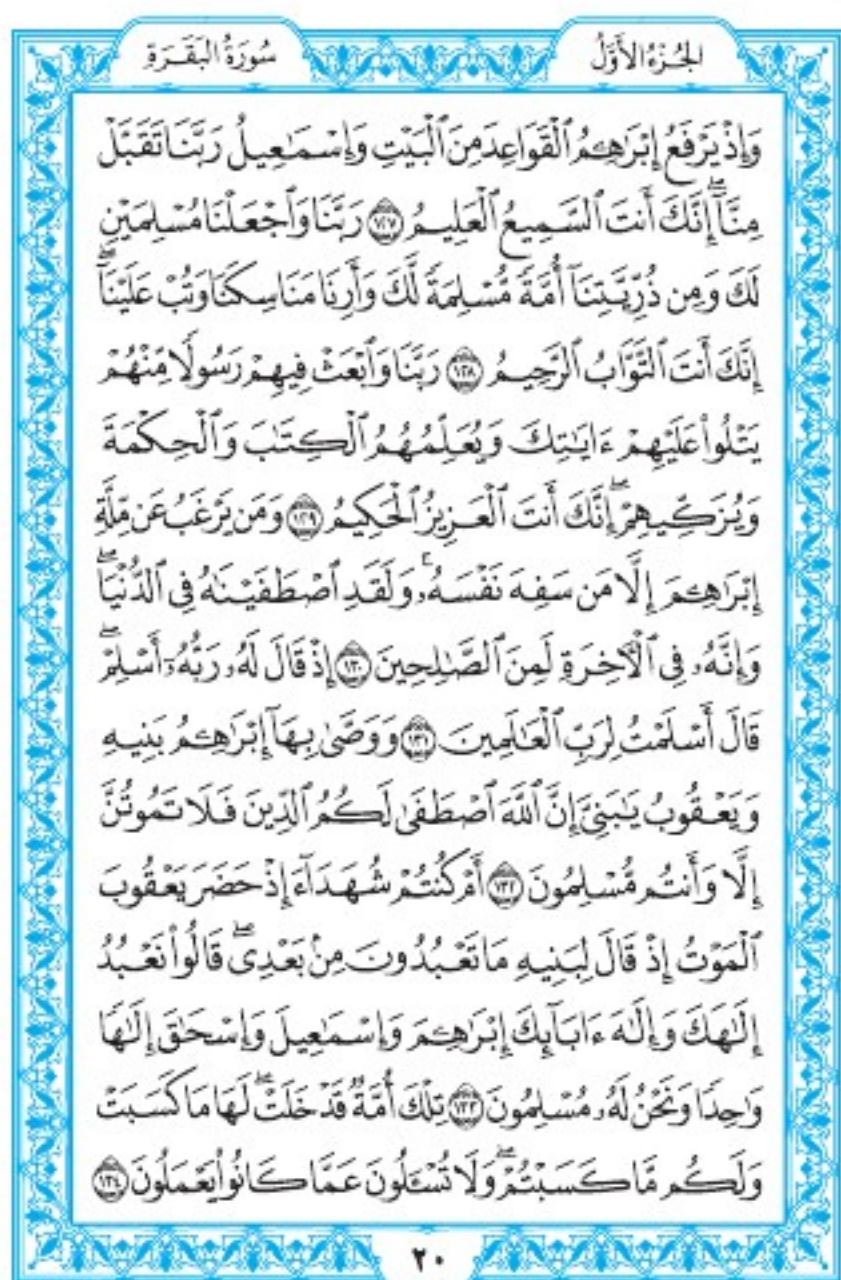 الجُزْءُ الأَوَّلُ
سُورَةُ البَقَرَةِ
وَإِذْ يَرْفَعُ إِبْرَٰهِـۧمُ ٱلْقَوَاعِدَ مِنَ ٱلْبَيْتِ وَإِسْمَـٰعِيلُ رَبَّنَا تَقَبَّلْ
مِنَّآ ۖ إِنَّكَ أَنتَ ٱلسَّمِيعُ ٱلْعَلِيمُ ١٢٧ رَبَّنَا وَٱجْعَلْنَا مُسْلِمَيْنِ
لَكَ وَمِن ذُرِّيَّتِنَآ أُمَّةً مُّسْلِمَةً لَّكَ وَأَرِنَا مَنَاسِكَنَا وَتُبْ عَلَيْنَآ ۖ
إِنَّكَ أَنتَ ٱلتَّوَّابُ ٱلرَّحِيمُ ١٢٨ رَبَّنَا وَٱبْعَثْ فِيهِمْ رَسُولًا مِّنْهُمْ
يَتْلُوا۟ عَلَيْهِمْ ءَايَـٰتِكَ وَيُعَلِّمُهُمُ ٱلْكِتَـٰبَ وَٱلْحِكْمَةَ
وَيُزَكِّيهِمْ ۖ إِنَّكَ أَنتَ ٱلْعَزِيزُ ٱلْحَكِيمُ ١٢٩ وَمَن يَرْغَبُ عَن مِّلَّةِ
إِبْرَٰهِـۧمَ إِلَّا مَن سَفِهَ نَفْسَهُۥ ۚ وَلَقَدِ ٱصْطَفَيْنَـٰهُ فِى ٱلدُّنْيَا ۖ
وَإِنَّهُۥ فِى ٱلْـَٔاخِرَةِ لَمِنَ ٱلصَّـٰلِحِينَ ١٣٠ إِذْ قَالَ لَهُۥ رَبُّهُۥٓ أَسْلِمْ ۖ
قَالَ أَسْلَمْتُ لِرَبِّ ٱلْعَـٰلَمِينَ ١٣١ وَوَصَّىٰ بِهَآ إِبْرَٰهِـۧمُ بَنِيهِ
وَيَعْقُوبُ يَـٰبَنِىَّ إِنَّ ٱللَّهَ ٱصْطَفَىٰ لَكُمُ ٱلدِّينَ فَلَا تَمُوتُنَّ
إِلَّا وَأَنتُم مُّسْلِمُونَ ١٣٢ أَمْ كُنتُمْ شُهَدَآءَ إِذْ حَضَرَ يَعْقُوبَ
ٱلْمَوْتُ إِذْ قَالَ لِبَنِيهِ مَا تَعْبُدُونَ مِنۢ بَعْدِى ۖ قَالُوا۟ نَعْبُدُ
إِلَـٰهَكَ وَإِلَـٰهَ ءَابَآئِكَ إِبْرَٰهِـۧمَ وَإِسْمَـٰعِيلَ وَإِسْحَـٰقَ إِلَـٰهًا
وَٰحِدًا وَنَحْنُ لَهُۥ مُسْلِمُونَ ١٣٣ تِلْكَ أُمَّةٌ قَدْ خَلَتْ ۖ لَهَا مَا كَسَبَتْ
وَلَكُم مَّا كَسَبْتُمْ ۖ وَلَا تُسْـَٔلُونَ عَمَّا كَانُوا۟ يَعْمَلُونَ ١٣٤
٢٠